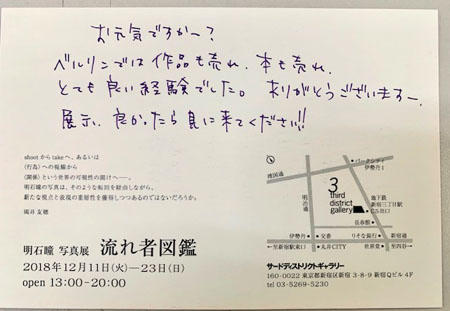 お元気ですかー？
ベルリンでは作品も売れ、本も売れ、
とても良い経験でした。ありがとうございますー。
展示、良かったら見に来てください!!
shootからtakeへ、あるいは
〈行為〉への収縮から
〈関係〉という世界の可視性の開けへ―。
明石瞳の写真は、そのような転回を経由しながら、
新たな視点と表現の重層性を獲得しつつあるのではないだろうか。
明石瞳 写真展 流れ者図鑑
2018年12月11日(火)―23日(日)
open 13:00-20:00
靖国通
パークシティ
伊勢丹1
明治通
3
third
district
gallery
地下鉄
新宿三丁目駅
C5出口
長春館
伊勢丹
交番
りそな銀行
新宿通
←至新宿駅東口
丸井CITY
世界堂
→至四谷
サードディストリクトギャラリー
160-0022 東京都新宿区新宿 3-8-9 新宿Qビル 4F
tel 03-5269-5230